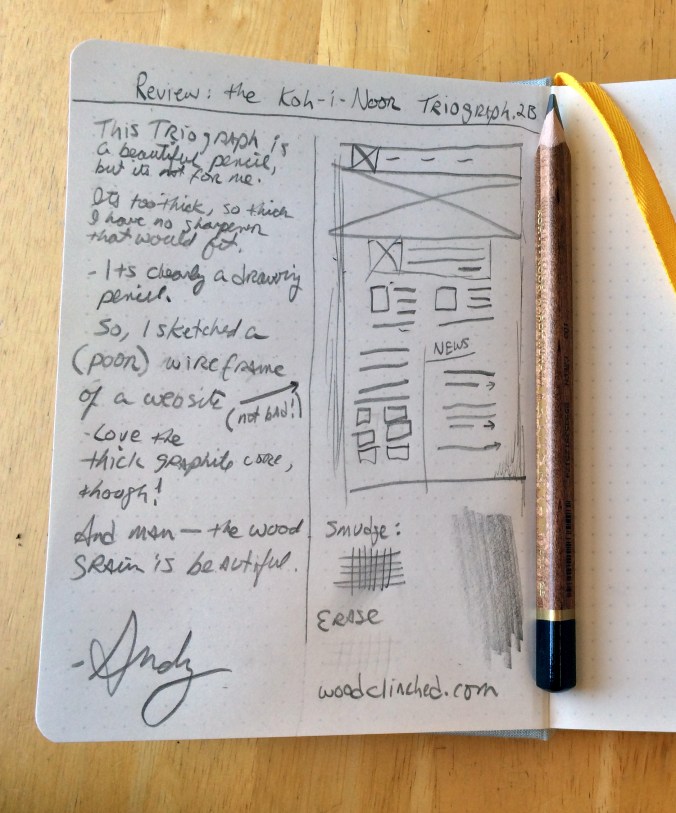 Review: the Koh-i-Noor Triograph.2B
This Triograph is
a beautiful pencil,
but its not for me.
Its too thick, so thick
I have no sharpener
that would fit.
- Its clearly a drawing
pencil.
So, I sketched a
(poor) wireframe
of a website
(not bad!)
- Love the
thick graphite core,
though!
And man — the wood
grain is beautiful.
- Andy
NEWS
Smudge:
Erase
woodclinched.com